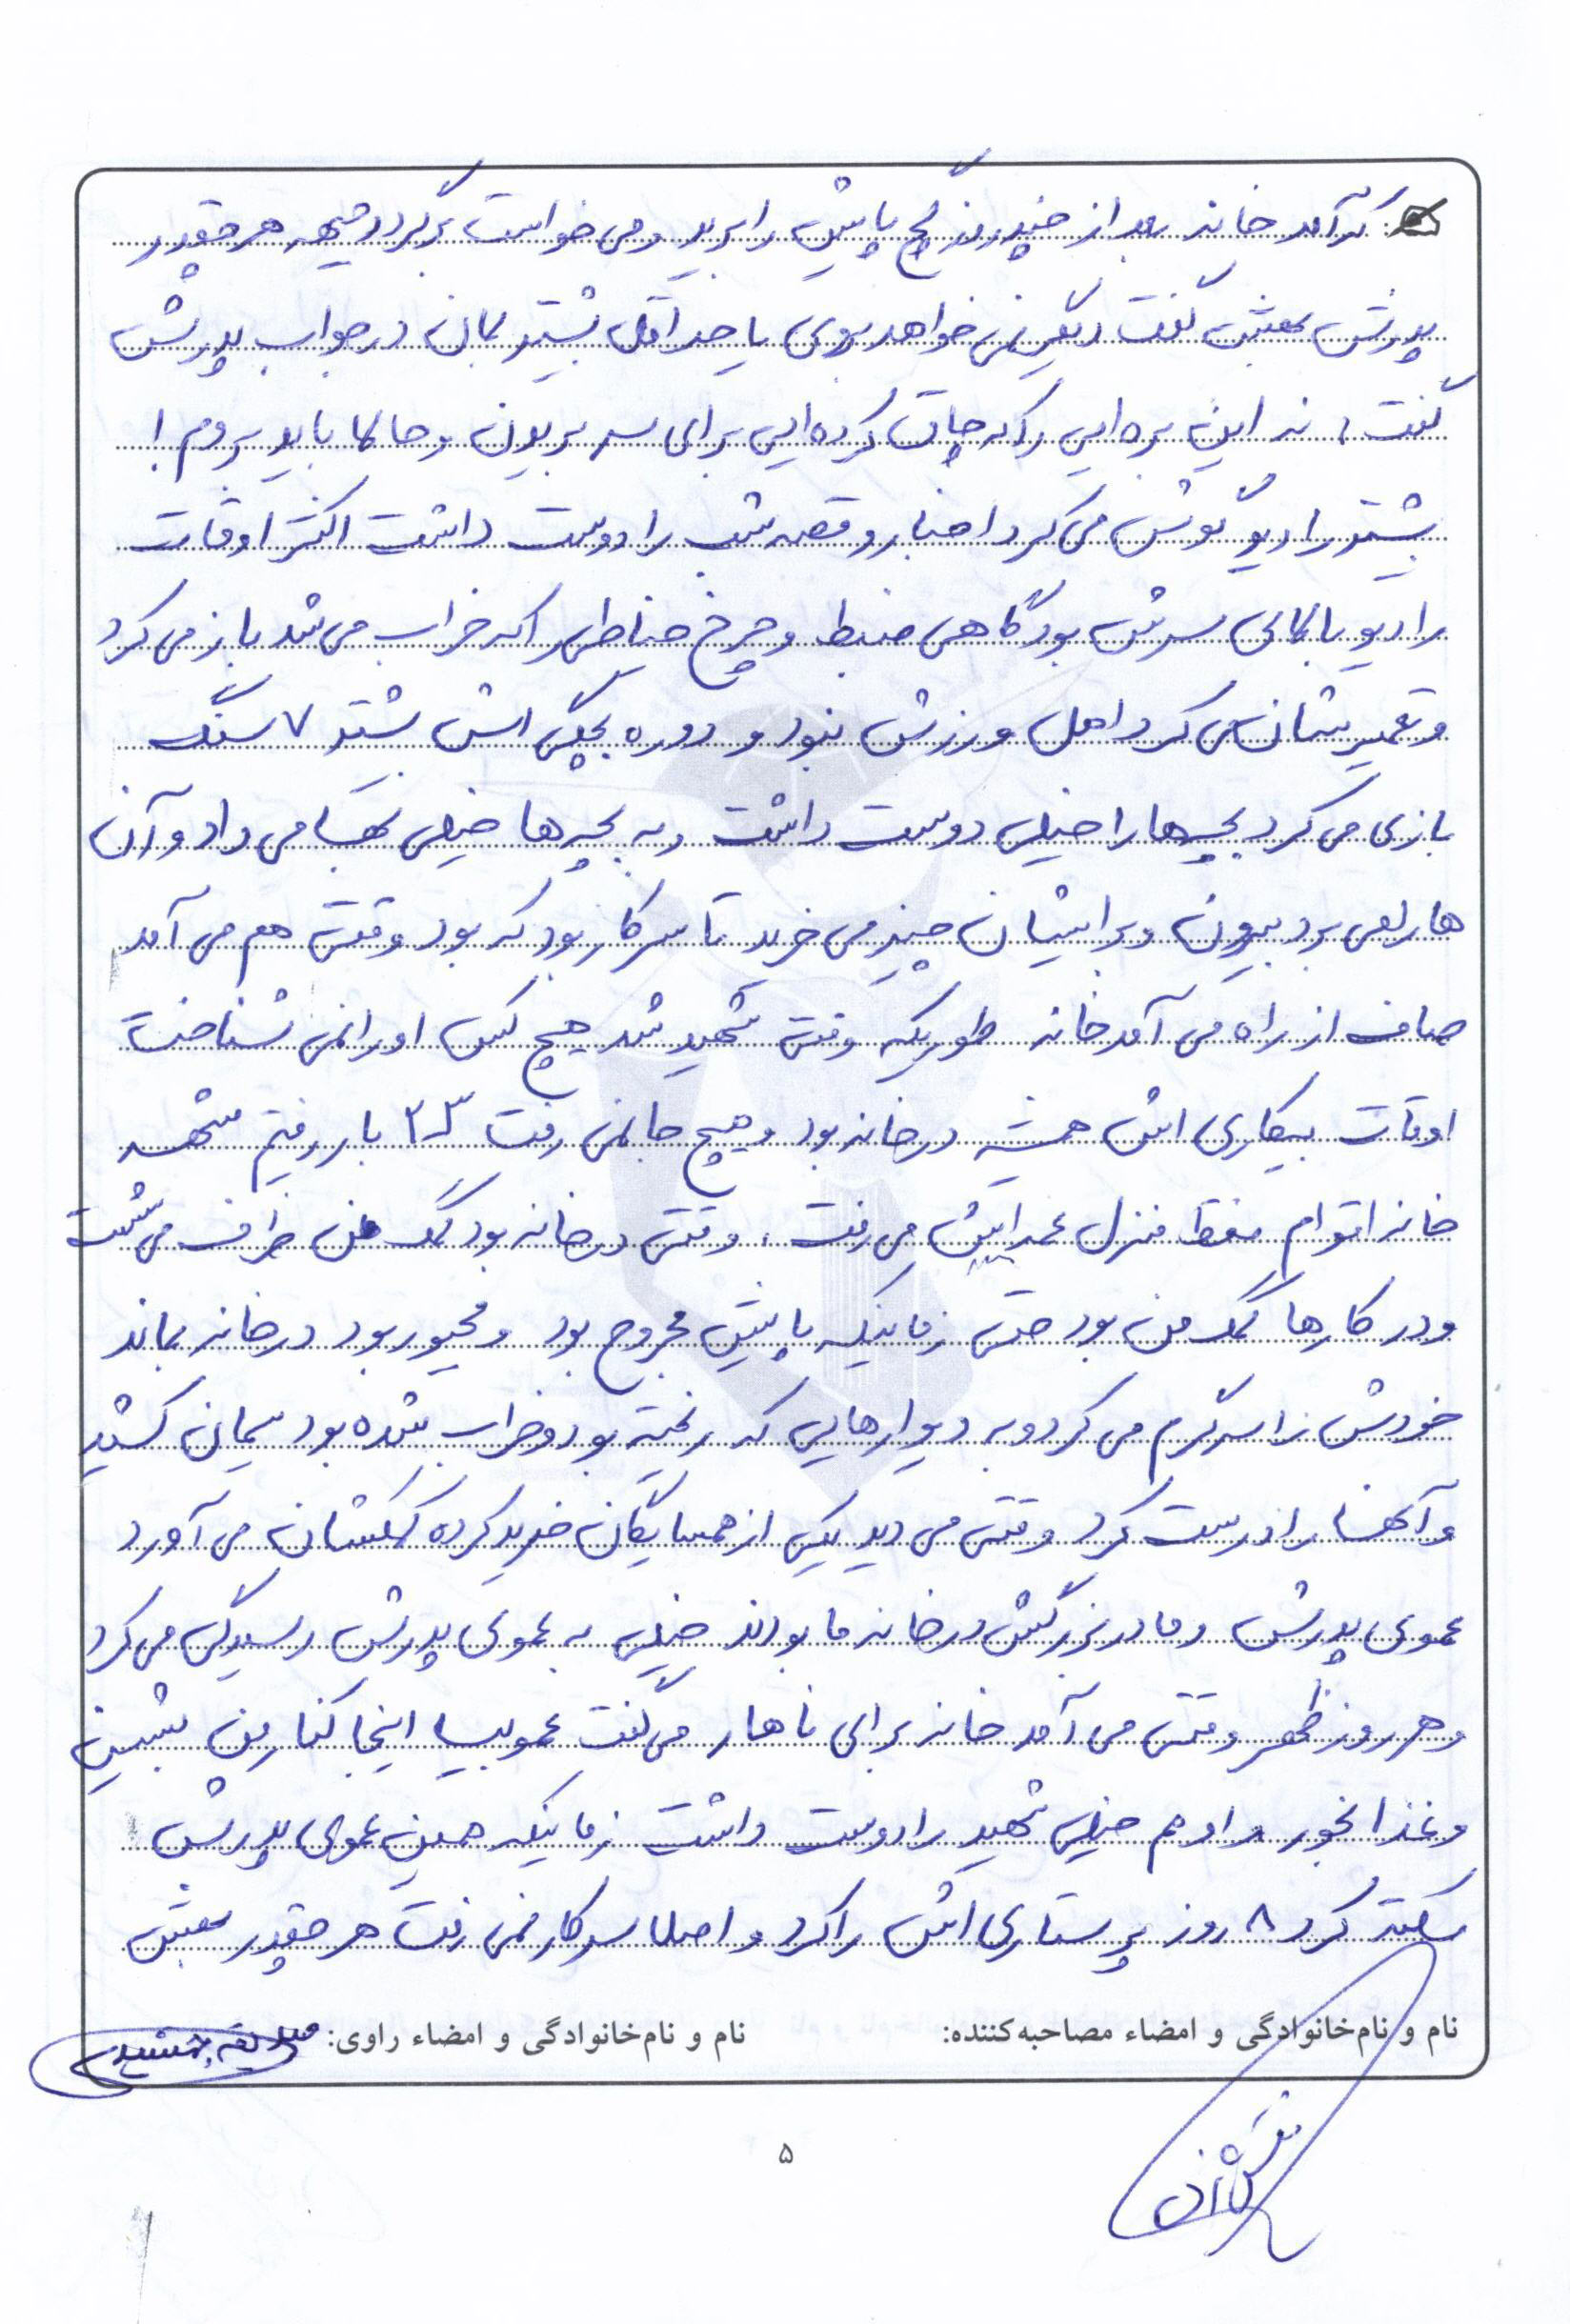 که آمد خانه بعد از چند روز گچ پایش را برید و می خواست برگردد جبهه هر چقدر
پدرش بهش گفت نمی خواهد بروی یا حداقل بیشتر بمان در جواب پدرش
گفت: نه این بره ایی را که چاق کرده ایی برای سر بریدن و حالا باید بروم!
بیشتر رادیو گوش می کرد اخبار و قصه شب را دوست داشت اکثر اوقات
رادیو بالای سرش بود گاهی ضبط و چرخ خیاطی را که خراب می شد باز می کرد
و تعمیرشان می کرد اهل ورزش نبود و دوره بچگی اش بیشتر ۷ سنگ
بازی می کرد بچه ها را خیلی دوست داشت و به بچه ها خیلی بها می داد و آن
ها را می برد بیرون و برایشان چیز می خرید تا سر کار بود که بود وقتی هم می آمد
صاف از راه می آمد خانه طوریکه وقتی شهید شد هیچ کس او را نمی شناخت
اوقات بیکاری اش همیشه در خانه بود و هیچ جا نمی رفت ۲۳ بار رفتیم مشهد
خانه اقوام فقط منزل عمه اش می رفت. وقتی در خانه بود کمک من ظرف می شست
و در کارها کمک من بود حتی زمانیکه پایش مجروح بود و مجبور بود در خانه بماند
خودش را سرگرم می کرد و به دیوارهایی که ریخته بود و خراب شده بود سیمان کشید
و آنها را درست کرد وقتی می دید یکی از همسایگان خرید کرده کمکشان می آورد
عموی پدرش و مادربزرگش در خانه ما بودند خیلی به عموی پدرش رسیدگی می کرد
و هر روز ظهر وقتی می آمد خانه برای ناهار می گفت عمو بیا اینجا کنار من بشین
و غذا بخور و او هم خیلی شهید را دوست داشت زمانیکه همین عموی پدرش
سکته کرد ۸ روز پرستاری اش را کرد و اصلا سر کار نمی رفت هر چقدر بهش
نام و نام‌خانوادگی و امضاء مصاحبه‌کننده: نام و نام‌خانوادگی و امضاء راوی:
۵